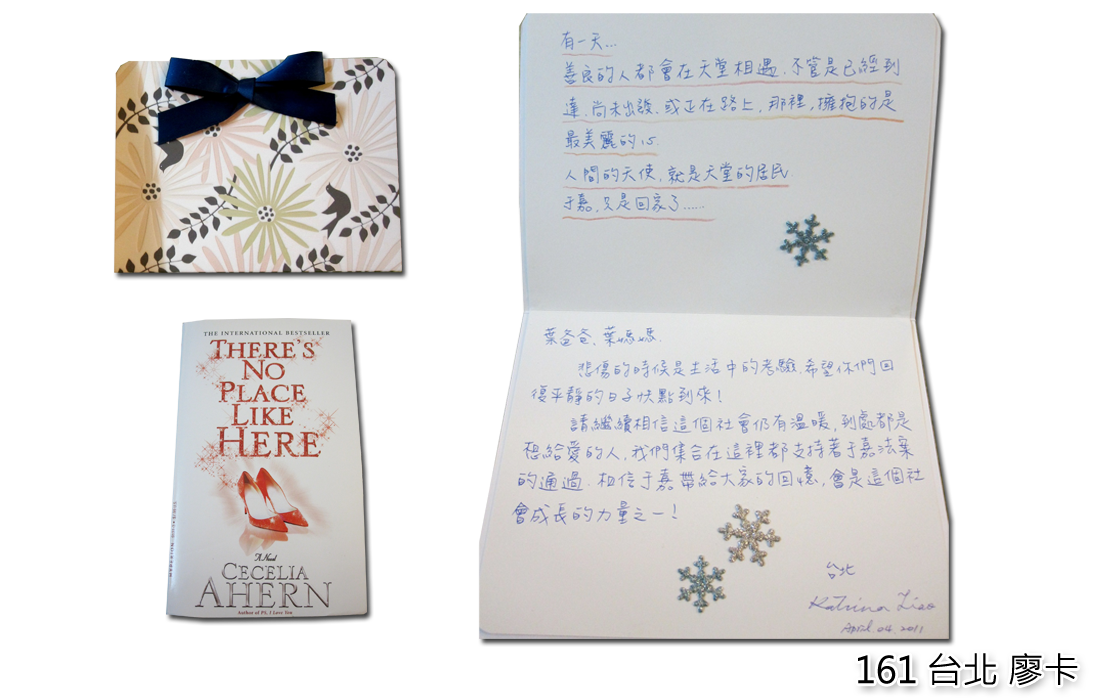 有一天...
善良的人都會在天堂相遇.不管是已經到
達.尚未出發.或正在路上.那裡,擁抱的是
最美麗的心.
人間的天使.就是天堂的居民
于嘉,只是回家了......
葉爸爸.葉媽媽.
悲傷的時候是生活中的考驗.希望你們回
復平靜的日子快點到來!
請繼續相信這個社會仍有溫暖,到處都是
想給愛的人,我們集合在這裡都支持著于嘉法案
的通過.相信于嘉帶給大家的回憶,會是這個社
會成長的力量之一!
台北
Katrina Liao
April. 04. 2011.
THE INTERNATIONAL BESTSELLER
THERE'S
NO
PLACE
LIKE
HERE
A Novel
CECELIA
AHERN
Author of PS, I Love You
161 台北 廖卡